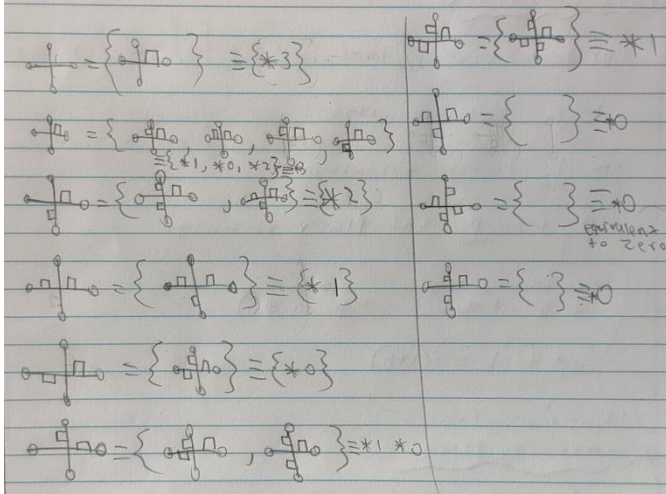 = { } ≡ {*3}
= { , , , }
≡ {*1, *0, *2} ≡ *3
= { , } ≡ {*2}
= { } ≡ {*1}
= { } ≡ {*0}
= { , } ≡ *1 *0
= { } ≡ *1
= { } ≡ *0
= { } ≡ *0
equivalent
to zero
= { } ≡ *0